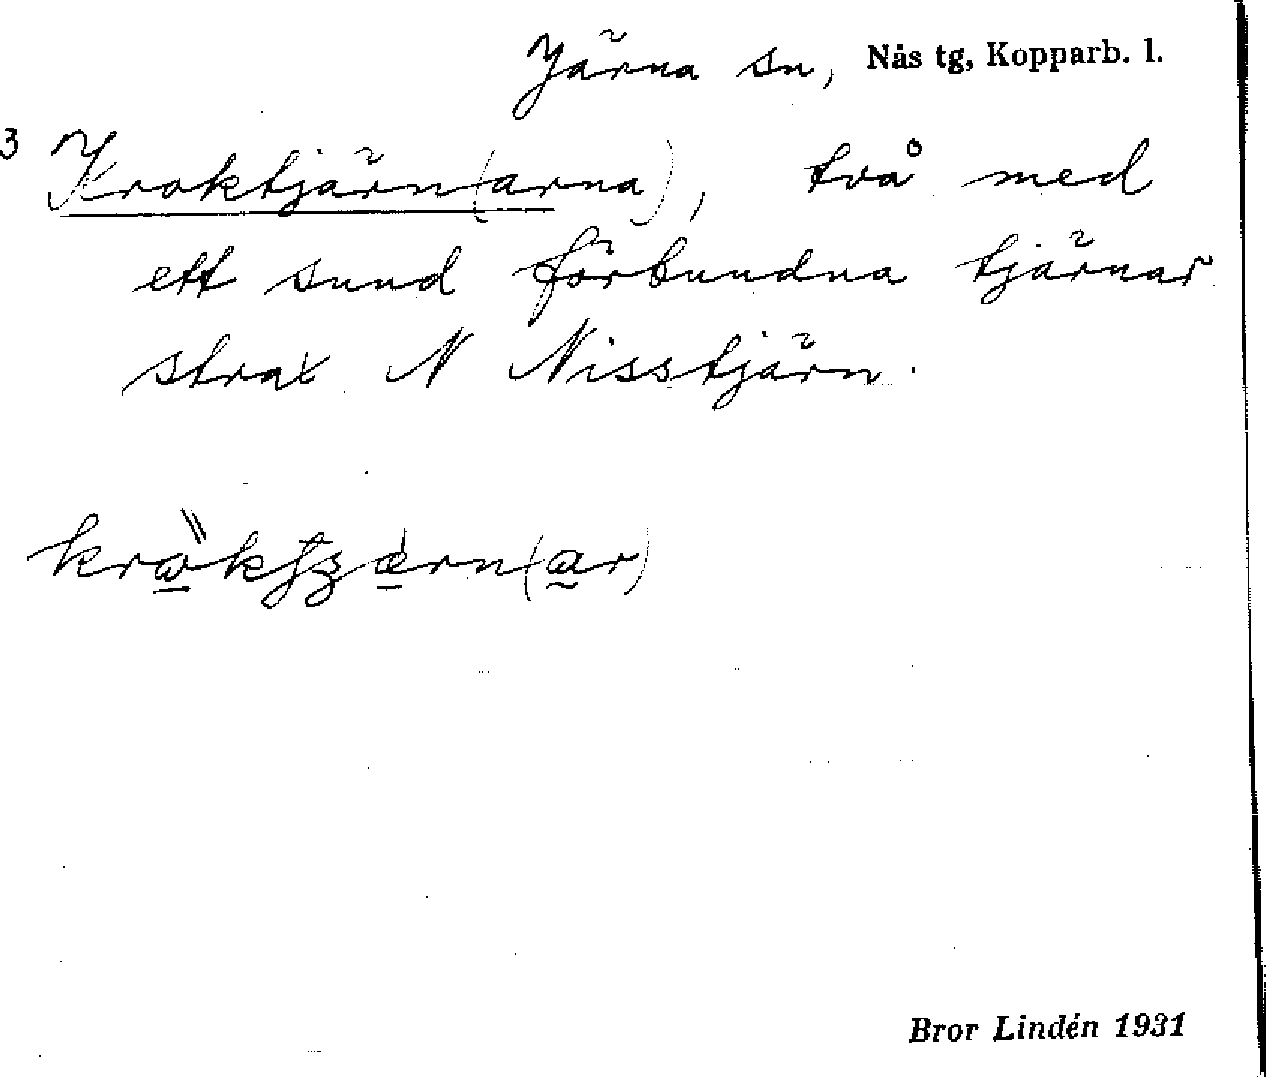 Järna sn, Nås tg, Kopparb. l.
3 Kroktjärn(arna), två med
ett sund förbundna tjärnar
strax N Nisstjärn.
Bror Lindén 1931